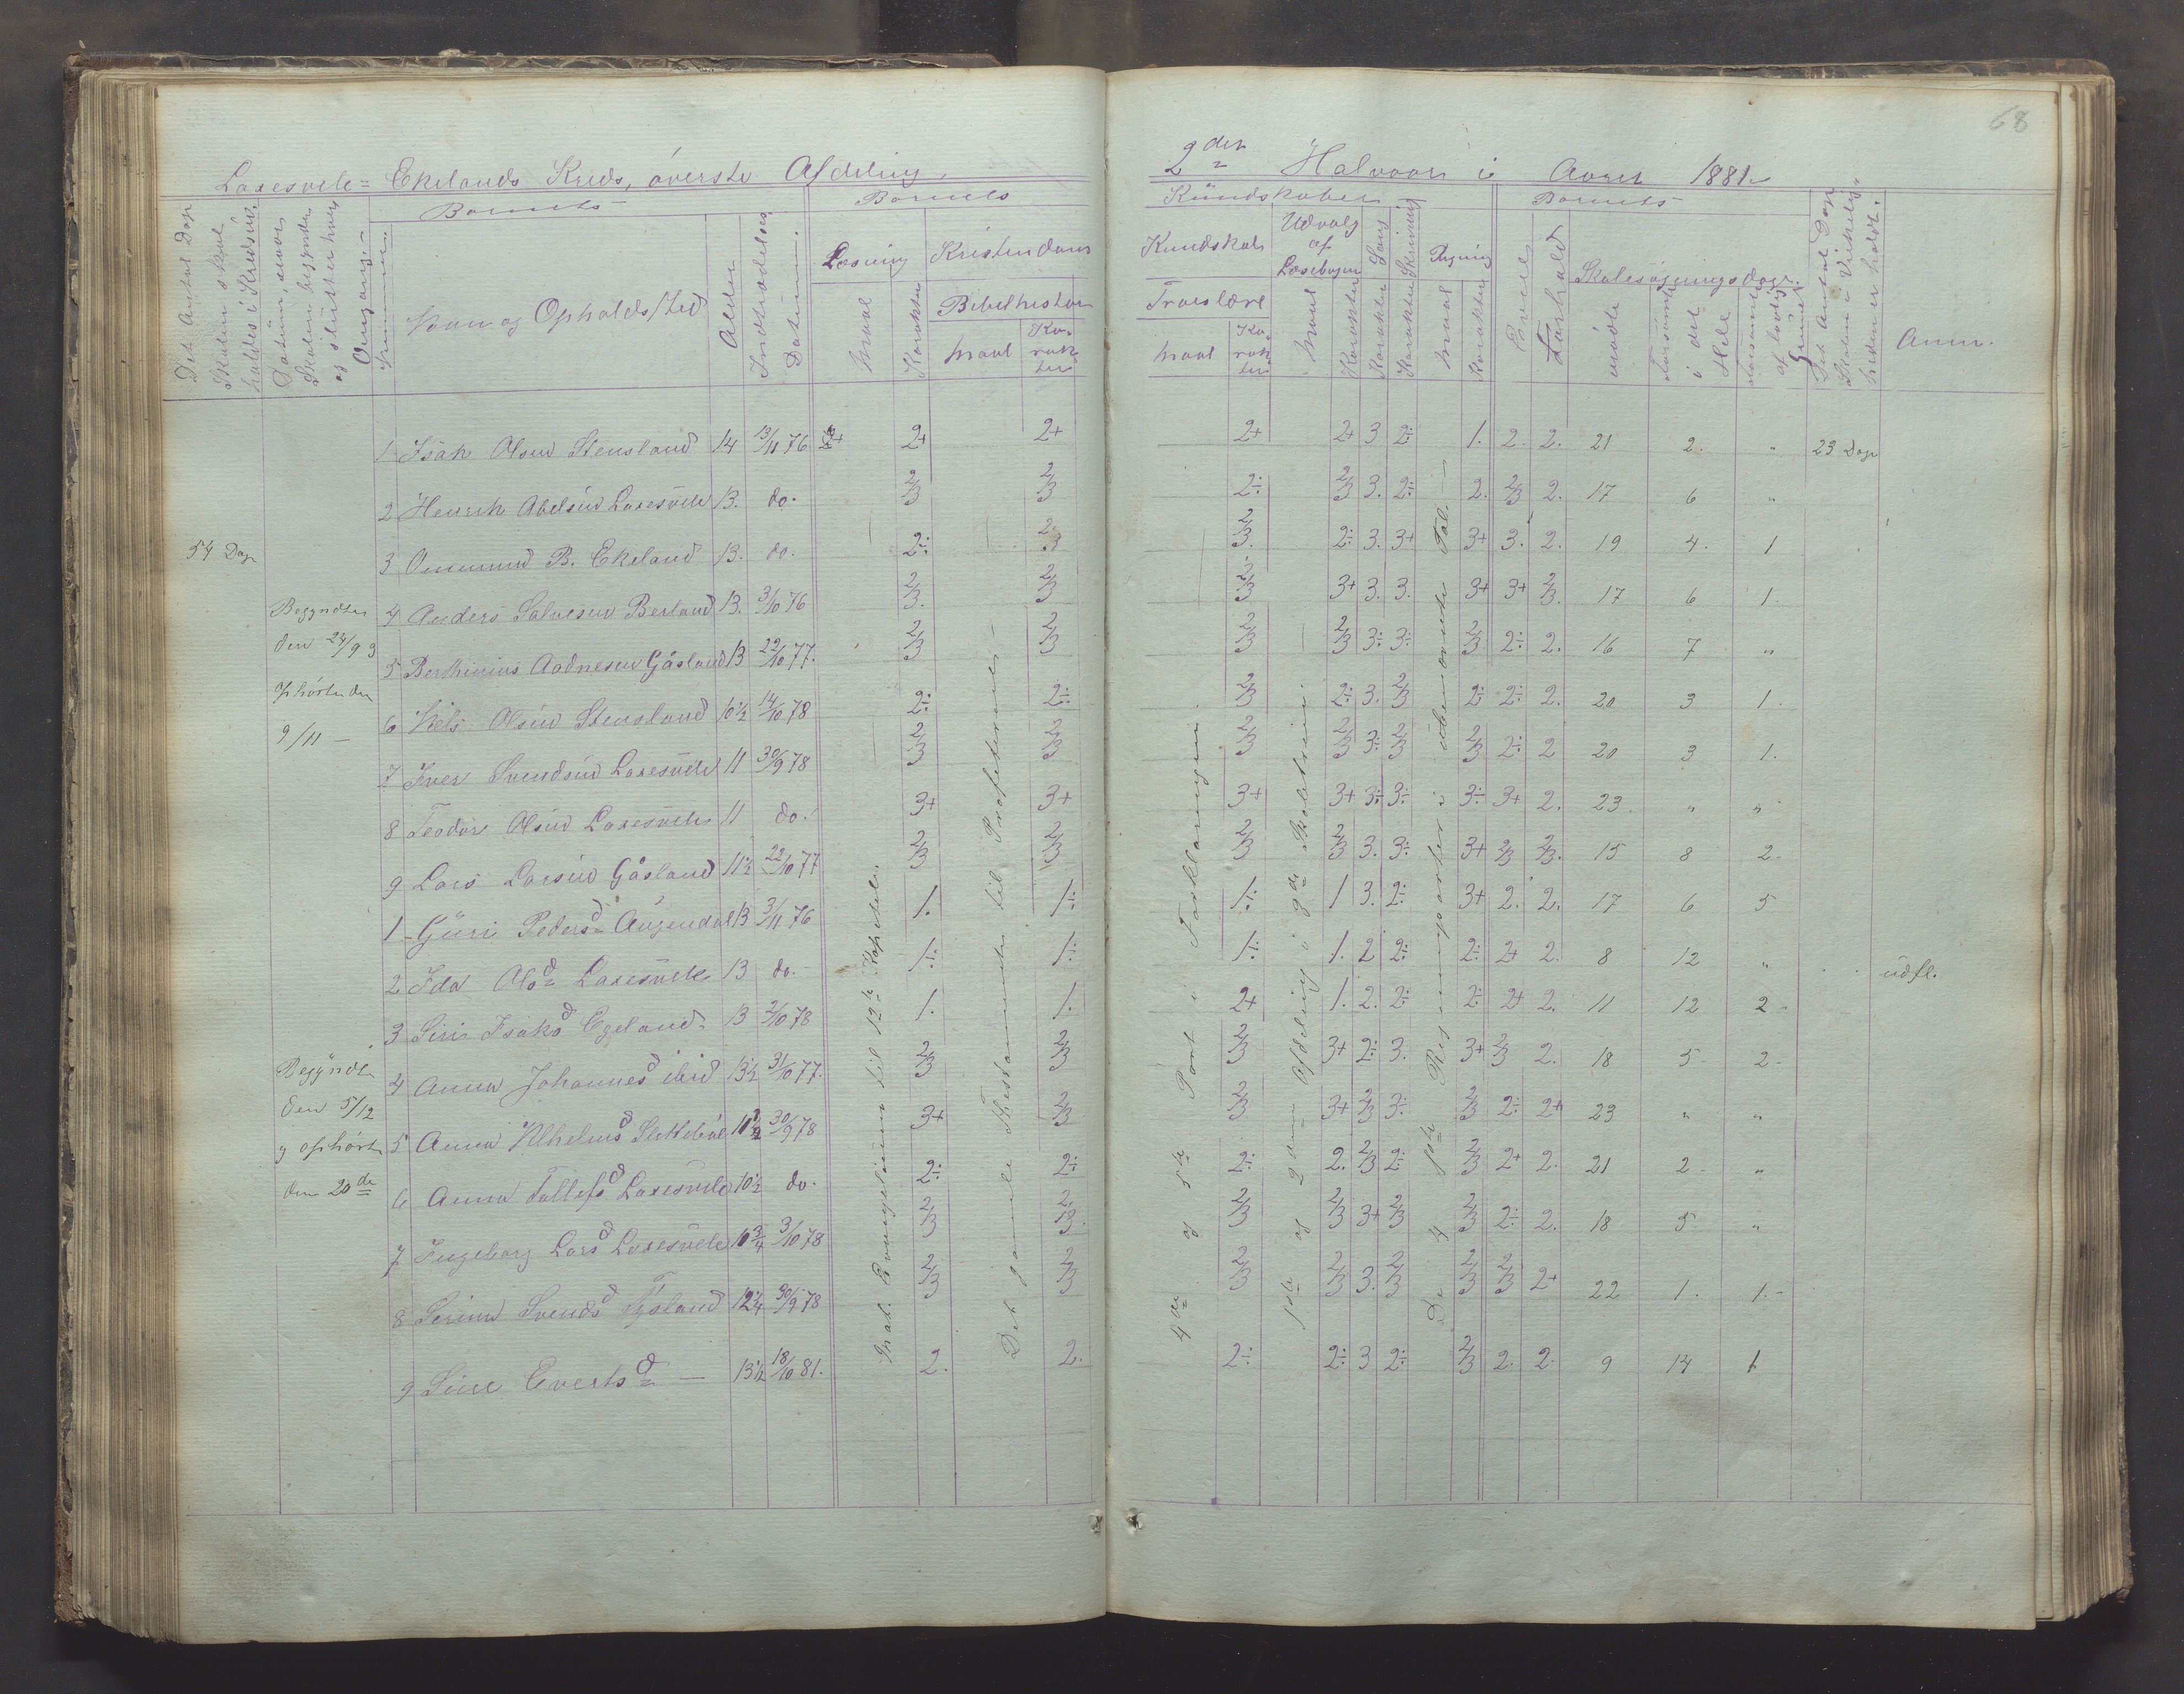 68
Laxesvele= Ekelands Kreds, øverste Afdeling
2det Halvaar i Aaret 1881.
Det Antal Dage Skolen skal holdes i Kredsen.
Datum, naar Skolen begynder og slutter hver Omgang.
Nummer.
Barnets
Navn og Opholdssted
Alder
Indtrædelses Datum.
Barnets
Læsning
Maal
Karakter
Kristendom
Bibelhistorie
Maal
Karakter
Kundskaber
Kundskab
Troeslære
Maal
Karakter
Udvalg af Læsebogen
Maal
Karakter
Sang
Karakter
Skrivning
Karakter
Regning
Maal
Karakter
Barnets
Evner
Forhold
Skolesøgningsdage.
mødte
forsømte i det Hele
forsømte af lovlig Grund
Det Antal Dage Skolen i Virkelighedenen er holdt.
Anm.
1 Isak Olsen Stensland 14 13/11 76 2+ 2+ 2+ 2+ 3 2÷ 1. 2. 2. 21 2. " 23 Dage
2 Henrik Abelsen Laxesvele 13. do. 2/3 2/3 2÷ 2/3 3. 2÷ 2. 2/3 2. 17 6 "
54 Dage
3 Ommund B. Ekeland 13. do. 2÷ 2/3 2/3. 2÷ 3. 3+ 3+ 3. 2. 19 4. 1
4 Anders Salvesen Berland 13. 3/10 76 2/3. 2/3 2/3 3+ 3. 3. 3+ 3+ 2/3. 17 6 1.
5 Berthinius Aadnesen Gåsland 13 22/10 77. 2/3 2/3 2/3 2/3 3÷ 3÷ 2/3 2÷ 2. 16 7 "
6 Nels Olsen Stensland 10½ 14/10 78 2÷ 2÷ 2/3 2÷ 3. 2/3 2÷ 2÷ 2. 20 3 1.
7 Iver Svendsen Laxesvele 11 30/9 78 2/3 2/3 2/3 2/3 3÷ 2/3 2/3 2÷ 2 20 3 1.
8 Teodor Olsen Laxesvele 11 do. 3+ 3+ 3+ 3+ 3÷ 3÷ 3÷ 3+ 2. 23. " "
9 Lars Larsen Gåsland 11½ 22/10 77 2/3 2/3 2/3 2/3 3. 3÷ 3+ 2/3 2/3. 15 8 2.
Begyndte den 24/9 og ophørte den 9/11 —
1 Guri Pedersd Augendal 13 3/11 76 1. 1÷ 1÷ 1 3. 2÷ 3+ 2. 2. 17 6 5
2 Ida Olsd Laxesvele 13 do. 1÷ 1÷ 1÷ 1. 2 2÷ 2÷ 2+ 2. 8 12 " udfl.
3 Siri Isaksd Egeland 13 2/10 78 1. 1. 2+ 1. 2. 2÷ 2÷ 2+ 2. 11 12 2
4 Anna Johannesd ibid 13½ 31/10 77. 2/3 2/3 2/3 3+ 2÷ 3. 3+ 2/3 2. 18 5 2
5 Anna Vilhelmsd Slettebøe 11½ 30/9 78 3+ 2/3 2/3 3+ 2/3 3÷ 2/3 2÷ 2+ 23 " "
6 Anna Tollefsd Laxesvele 10½ do. 2÷ 2÷ 2÷ 2. 2/3 2÷ 2/3 2+ 2. 21 2 "
7 Ingeborg Larsd Laxesvele 10¾ 3/10 78 2/3 2/3 2/3 2/3 3+ 2/3 2/3 2÷ 2. 18 5 "
8 Serina Svendsd Tysland 12¼ 30/9 78 2/3 2/3 2/3 2/3 3. 2/3 2/3 2/3 2+ 22 1. 1.
9 Sine Evertsd — 13½ 18/10 81. 2. 2. 2÷ 2÷ 3 2÷ 2/3 2. 2. 9 14 1
Begyndte den 5/12 og ophørte den 20de
Mat. Evangelium til 12te Kapitel.
Det gamle Thestamente til Profeterne
4de og 5te Part i Forklaringen.
1ste og 2den Afdeling i 3de Skoletrin.
De 4 første Regningsarter i ubenævnte Tal.